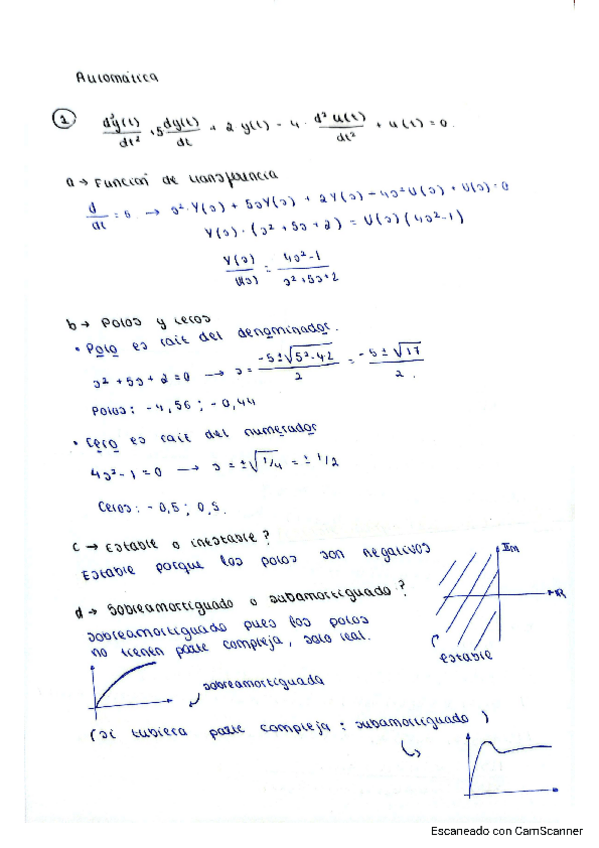 Automática
1 d²y(t)/dt² + 5 dy(t)/dt + 2 y(t) - 4 · d² u(t)/dt² + u(t) = 0.
a → Función de transferencia
d/dt = s → s² · Y(s) + 5sY(s) + 2Y(s) - 4s²U(s) + U(s) = 0
Y(s) · (s² + 5s + 2) = U(s) (4s² - 1)
Y(s)/U(s) = 4s² - 1 / s² + 5s + 2
b → Polos y ceros
• Polo es raíz del denominador.
s² + 5s + 2 = 0 → s = -5 ± √5² - 4·2 / 2 = -5 ± √17 / 2.
Polos: - 4,56 ; - 0,44
• Cero es raíz del numerador
4s² - 1 = 0 → s = ± √1/4 = ± 1/2
Ceros: - 0,5 ; 0,5.
c → Estable o inestable?
Estable porque los polos son negativos
Im
R
estable
d → Sobreamortiguado o subamortiguado?
sobreamortiguado pues los polos
no tienen parte compleja, solo real.
sobreamortiguada
(si tubiera parte compleja : subamortiguado )
Escaneado con CamScanner